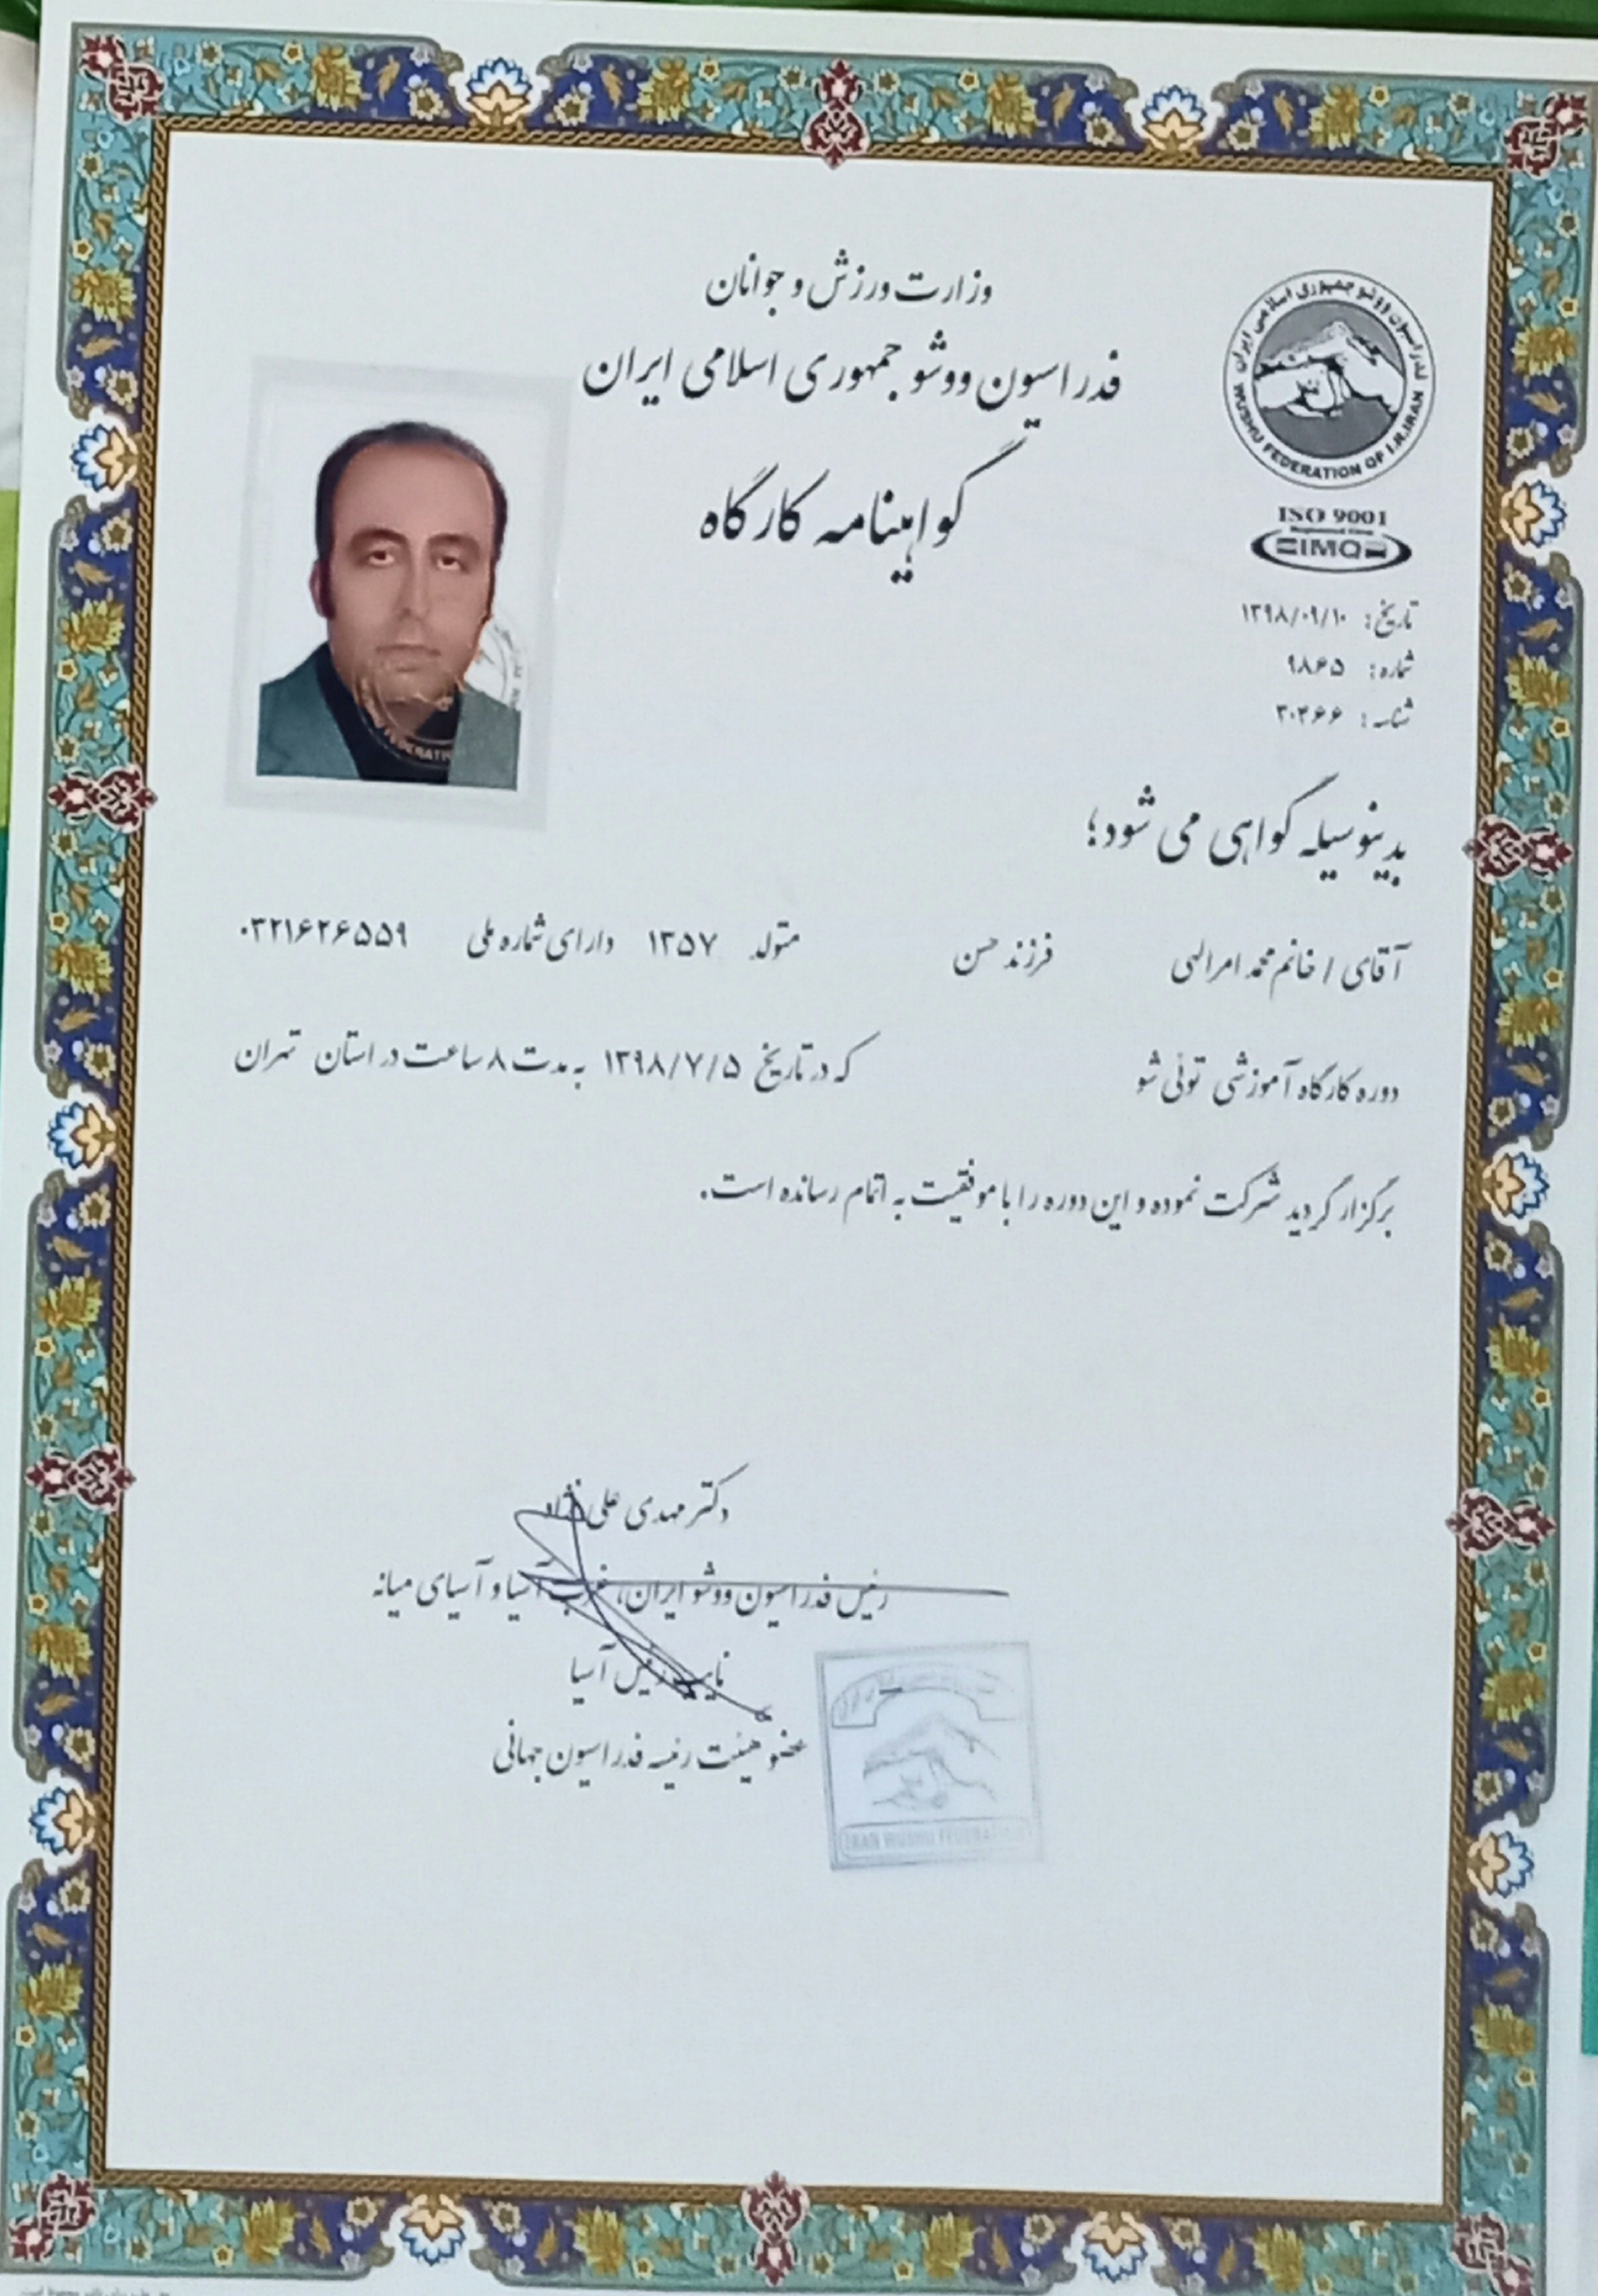 وزارت ورزش و جوانان
فدراسیون ووشو جمهوری اسلامی ایران
گواهینامه کارگاه
فدراسیون ووشو جمهوری اسلامی ایران
WUSHU FEDERATION OF I.R.IRAN
ISO 9001
IMQ
تاریخ: ۱۳۹۸/۰۹/۱۰
شماره: ۹۸۶۵
شناسه: ۳۰۴۶۶
بدینوسیله گواهی می شود؛
آقای / خانم محمد امرالهی فرزند حسن متولد ۱۳۵۷ دارای شماره ملی ۰۳۲۱۶۲۶۵۵۹
دوره کارگاه آموزشی توئی شو که در تاریخ ۱۳۹۸/۷/۵ به مدت ۸ ساعت در استان تهران
برگزار گردید شرکت نموده و این دوره را با موفقیت به اتمام رسانده است.
دکتر مهدی علی نژاد
رئیس فدراسیون ووشو ایران، غرب آسیا و آسیای میانه
نایب رئیس آسیا
عضو هیئت رئیسه فدراسیون جهانی
IRAN WUSHU FEDERATION